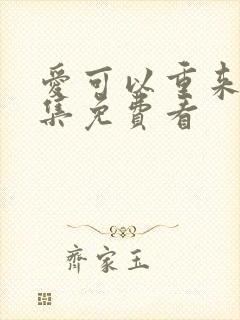 爱可以重来
集免費看
齊家玉